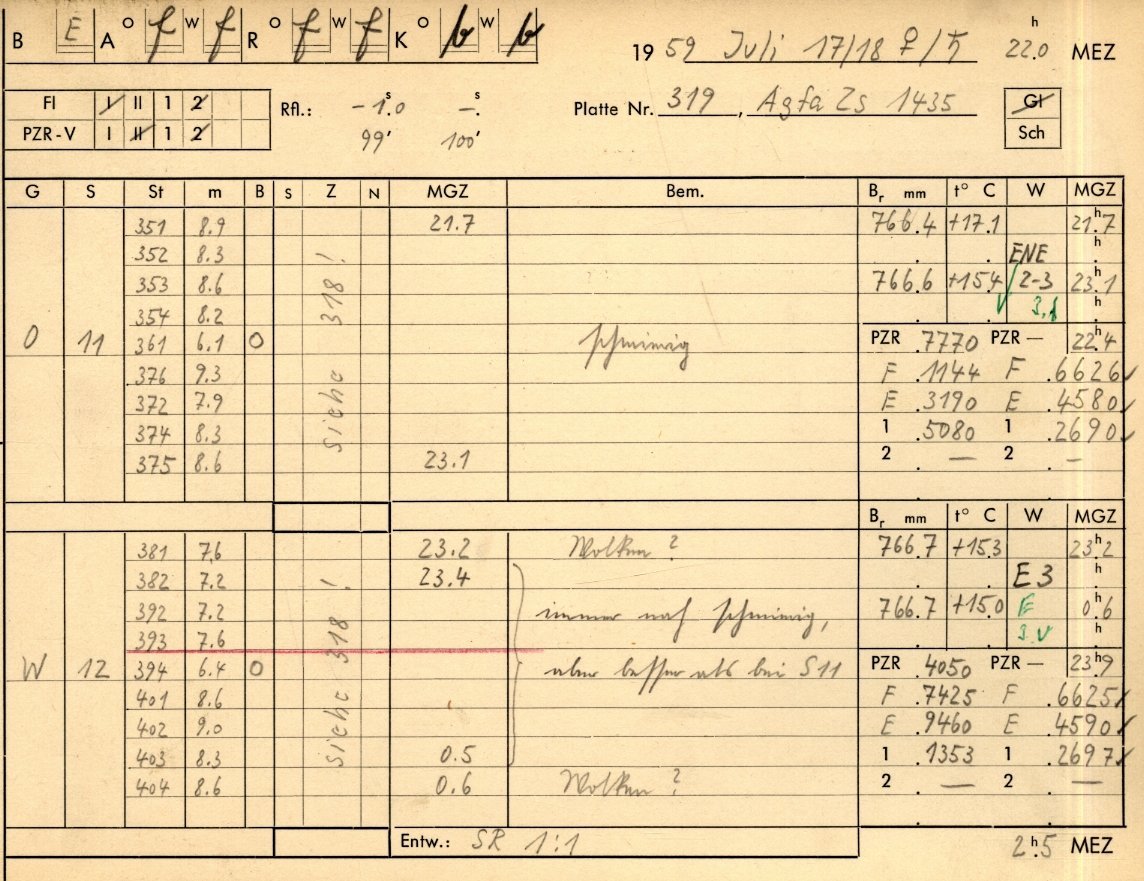 B E A o f w f R o f w f K o b w b
19 59 Juli 17/18 ♀/♄ 22.0 h MEZ
FI I II 1 2 Rfl.: -1.0 s -. s Platte Nr. 319, Agfa Zs 1435 GI
PZR-V I II 1 2 99' 100' Sch
G S St m B S Z N MGZ Bem. Br mm t° C W MGZ
351 8.9 21.7 766.4 +17.1 21.7 h
352 8.3 ENE h
353 8.6 766.6 +15.4 2-3 23.1 h
354 8.2 h
O 11 361 6.1 O siehe 318! schmierig PZR .7770 PZR — 22.4 h
376 9.3 F .1144 F .6626 ✓
372 7.9 E .3190 E .4580 ✓
374 8.3 1 .5080 1 .2690 ✓
375 8.6 23.1 2 . — 2 . —
Br mm t° C W MGZ
381 7.6 23.2 Wolken ? 766.7 +15.3 23.2 h
382 7.2 23.4 E3 h
392 7.2 immer noch schmierig, 766.7 +15.0 E 0.6 h
393 7.6 h
W 12 394 6.4 O siehe 318! aber besser als bei S11 PZR .4050 PZR — 23.9 h
401 8.6 F .7425 F .6625 ✓
402 9.0 E .9460 E .4590 ✓
403 8.3 0.5 1 .1353 1 .2697 ✓
404 8.6 0.6 Wolken ? 2 . — 2 . —
Entw.: SR 1:1 2.5 h MEZ